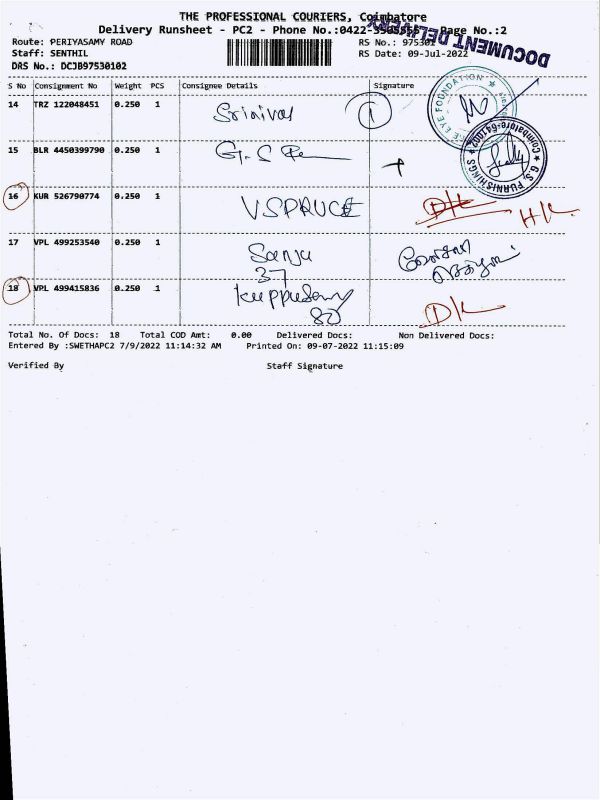 THE PROFESSIONAL COURIERS, Coimbatore
Delivery Runsheet - PC2 - Phone No.:0422- Page No.:2
DOCUMENT DELIVERY
Route: PERIYASAMY ROAD
RS No.: 975301
Staff: SENTHIL
RS Date: 09-Jul-2022
DRS No.: DCJB97530102
S No Consignment No Weight PCS Consignee Details Signature
14 TRZ 122048451 0.250 1 Srinivas 1
EYE FOUNDATION
15 BLR 4450399790 0.250 1 G.S
G.S. FURNISHINGS ★ Coimbatore-641002 ★
16 KUR 526790774 0.250 1 VSPRUCE D/L H/L
17 VPL 499253540 0.250 1 Sanju
37
18 VPL 499415836 0.250 1 Kuppusamy D/L
80
Total No. Of Docs: 18 Total COD Amt: 0.00 Delivered Docs: Non Delivered Docs:
Entered By :SWETHAPC2 7/9/2022 11:14:32 AM Printed On: 09-07-2022 11:15:09
Verified By Staff Signature